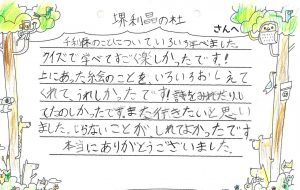 堺利晶の杜
さんへ
千利休のことについていろいろ学べました。
クイズで学べてすごく楽しかったです!
上にあった絵のことを、いろいろおしえて
くれて、うれしかったです!詩をみれたりし
てたのしかったです。また行きたいと思い
ました。しらないことが、しれてよかったです
本当にありがとうございました。